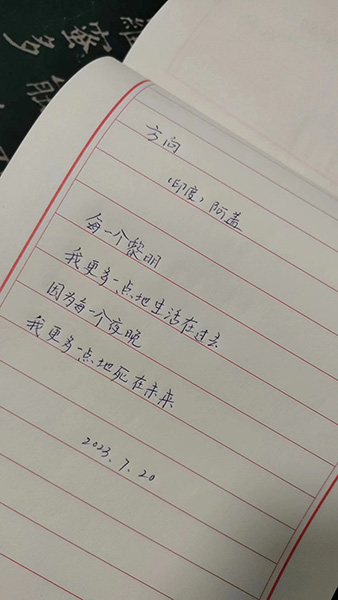 方向
(印度)阿盖
每一个黎明
我更多一点地生活在过去
因为每一个夜晚
我更多一点地死在未来
2023.7.20